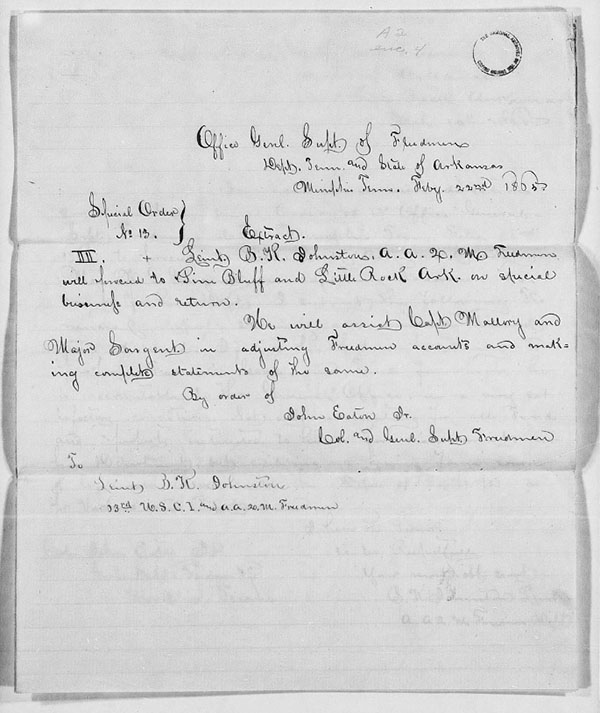 A 2
enc. 4
Office Genl. Supt of Freedmen
Dept. Tenn. and State of Arkansas
Memphis Tenn. Feby. 22nd 1865
Special Order }
No 13. } Extract.
III. + Lieut, B. K. Johnston, A. A. Q. M. Freedmen
will proceed to Pine Bluff and Little Rock Ark. on special
business and return.
He will assist Capt Mallory and
Major Sargent in adjusting Freedmen accounts and mak-
ing complete statements of the same.
By order of
John Eaton Jr.
Col. and Genl. Supt Freedmen
To
Lieut, B. K. Johnston
U. S. C. I. and A. A. Q. M. Freedmen